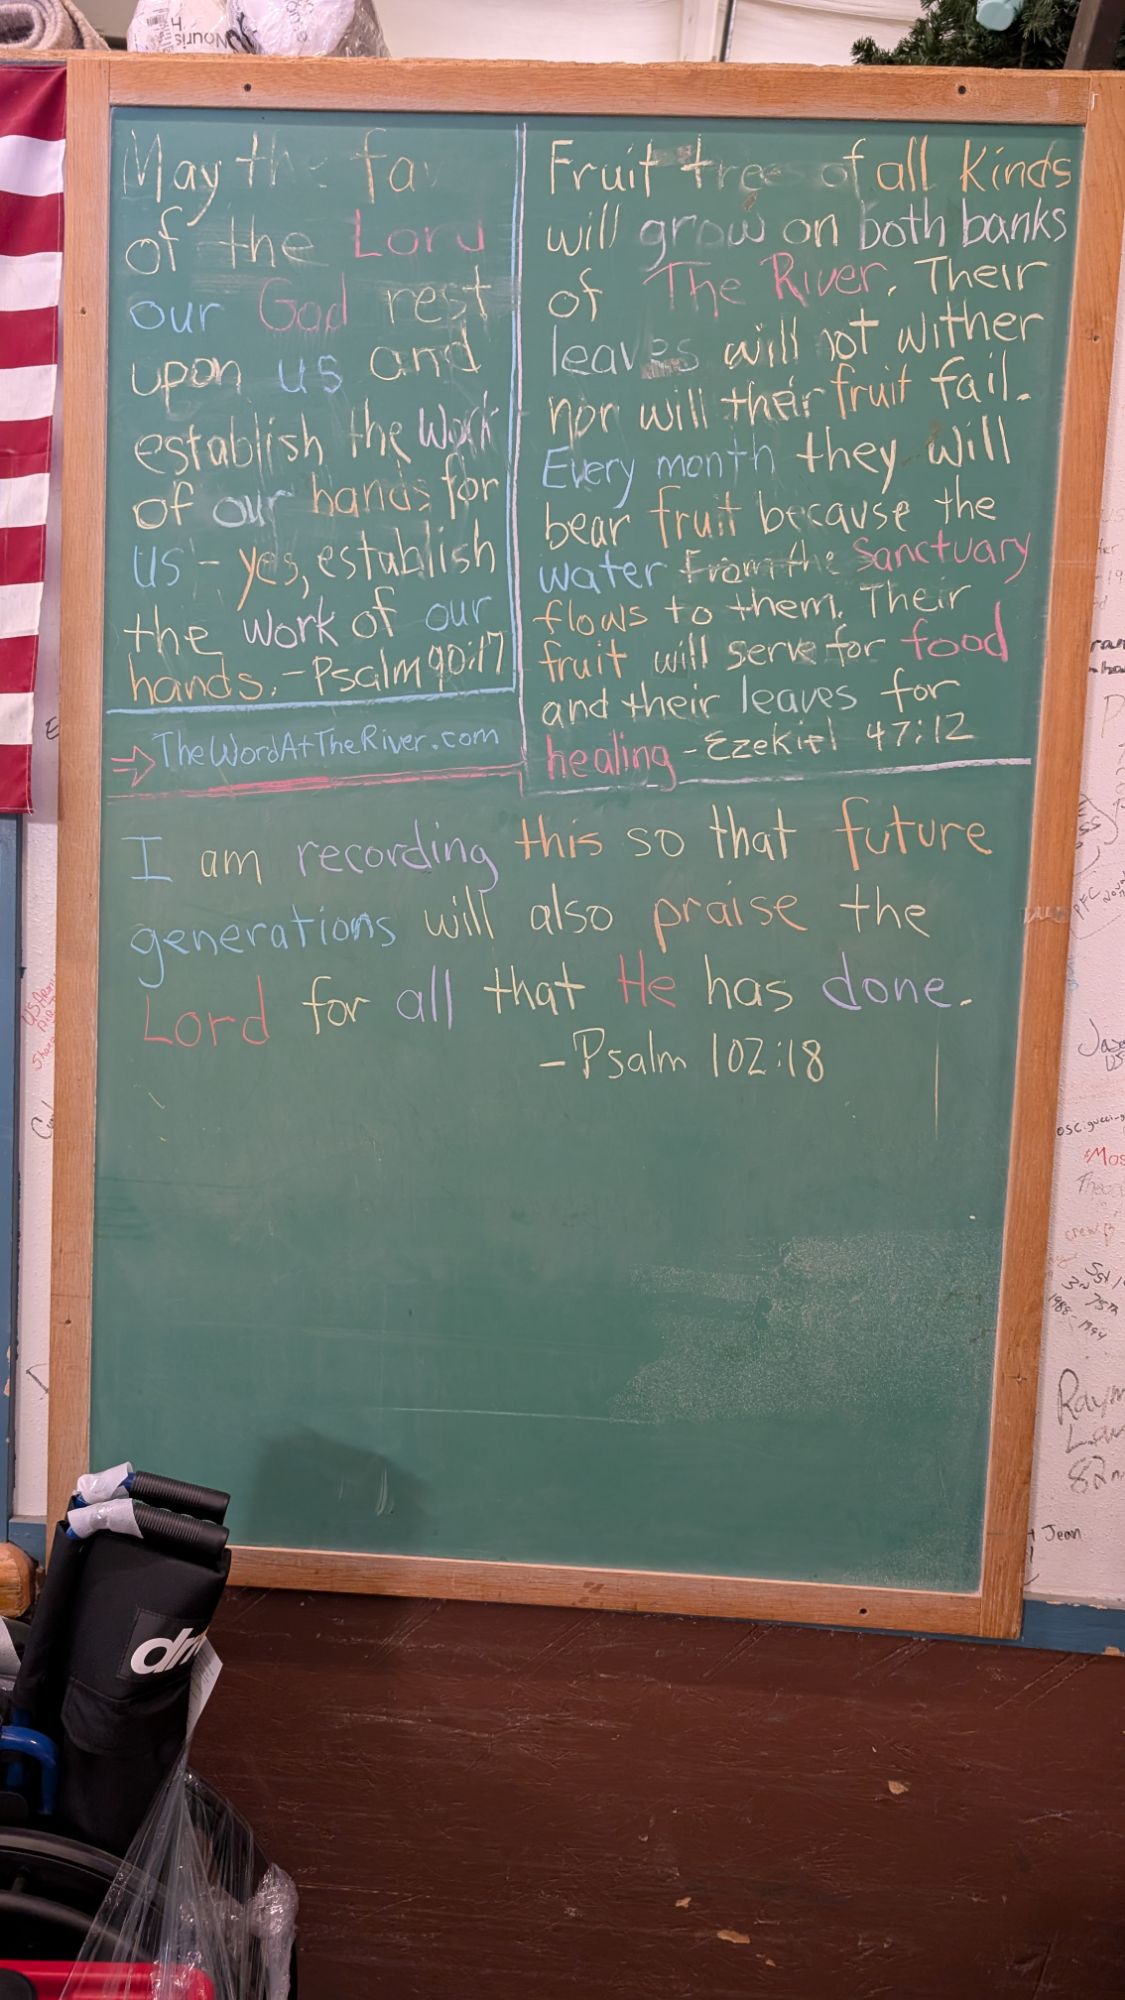 May the fa
of the Lord
our God rest
upon us and
establish the Work
of our hands for
us - yes, establish
the work of our
hands. - Psalm 90:17
→ TheWordAtTheRiver.com
Fruit trees of all Kinds
will grow on both banks
of The River. Their
leaves will not wither
nor will their fruit fail.
Every month they will
bear fruit because the
water from the Sanctuary
flows to them. Their
fruit will serve for food
and their leaves for
healing - Ezekiel 47:12
I am recording this so that future
generations will also praise the
Lord for all that He has done.
- Psalm 102:18
Raym
Jean